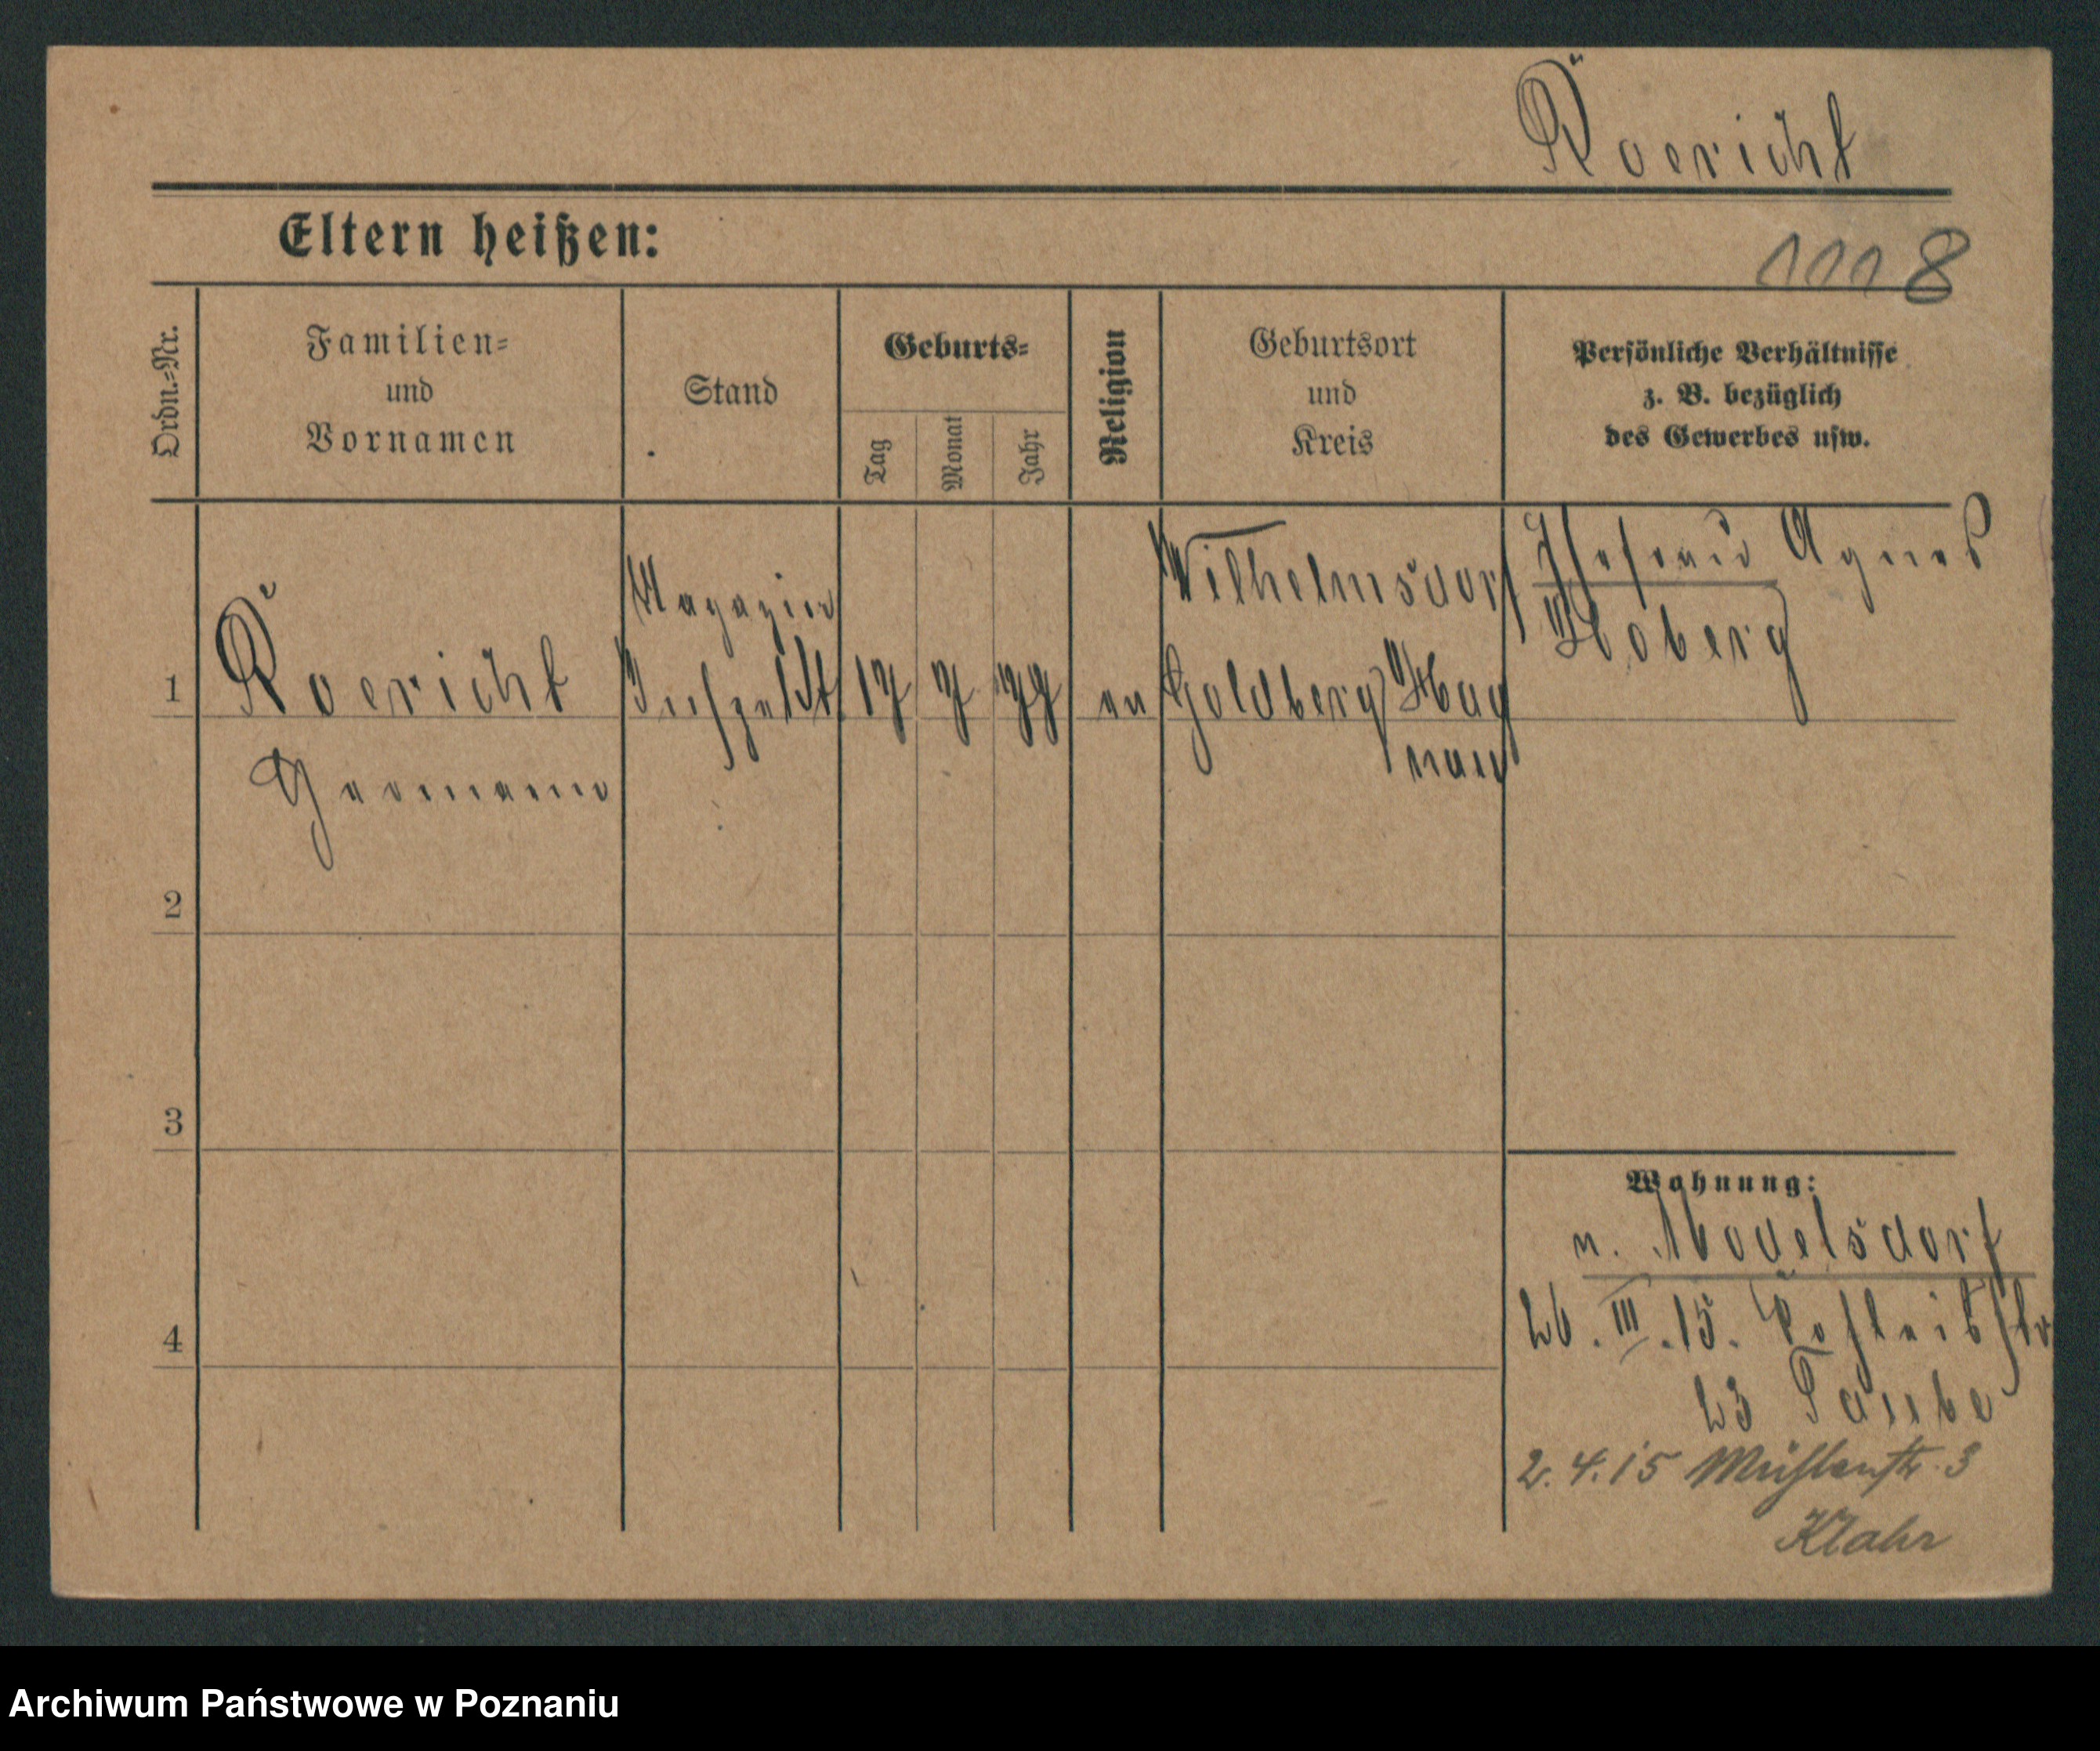 Roericht
Eltern heißen:
1118
Ordn.=Nr.
Familien=
und
Vornamen
Stand
Geburts=
Tag
Monat
Jahr
Religion
Geburtsort
und
Kreis
Persönliche Verhältnisse
z. B. bezüglich
des Gewerbes usw.
1
Roericht
Hermann
Magazin
Inspekt
17 7 77
ev
Wilhelmsdorf
Goldberg Hay
nau
Ehefrau Agnes
Hoberg
2
3
4
Wohnung:
n. Modelsdorf
26. III. 15.
23 Taube
2. 4. 15 Mühlenstr. 3
Klahr
Archiwum Państwowe w Poznaniu